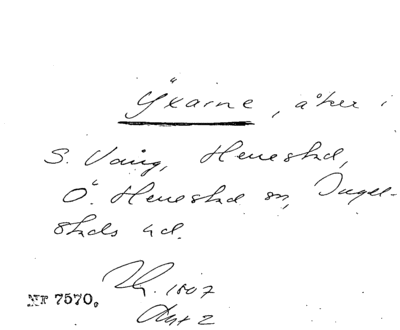 Yxarne, åker i
S. Vång, Herrestad,
Ö. Herrestad sn, Ingel-
stads hd.
1807
Akt 2
Nr 7570.